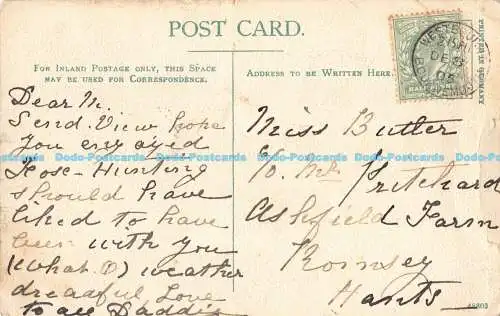 POST CARD.
FOR INLAND POSTAGE ONLY, THIS SPACE
MAY BE USED FOR CORRESPONDENCE.
ADDRESS TO BE WRITTEN HERE.
PRINTED IN GERMANY
HALFPENNY
DE
05
Dear M.
Send. View hope
you enjoyed
Hose-Hunting
should have
liked to have
been with you
(What O) weather
dreadful Love
to all Daddie
Miss Butler
C/o Mr Pritchard
Ashfield Farm
Romsey
Hants
48803
Dodo-Postcards Dodo-Postcards Dodo-Postcards Dodo-Postcards Dodo-Postcards